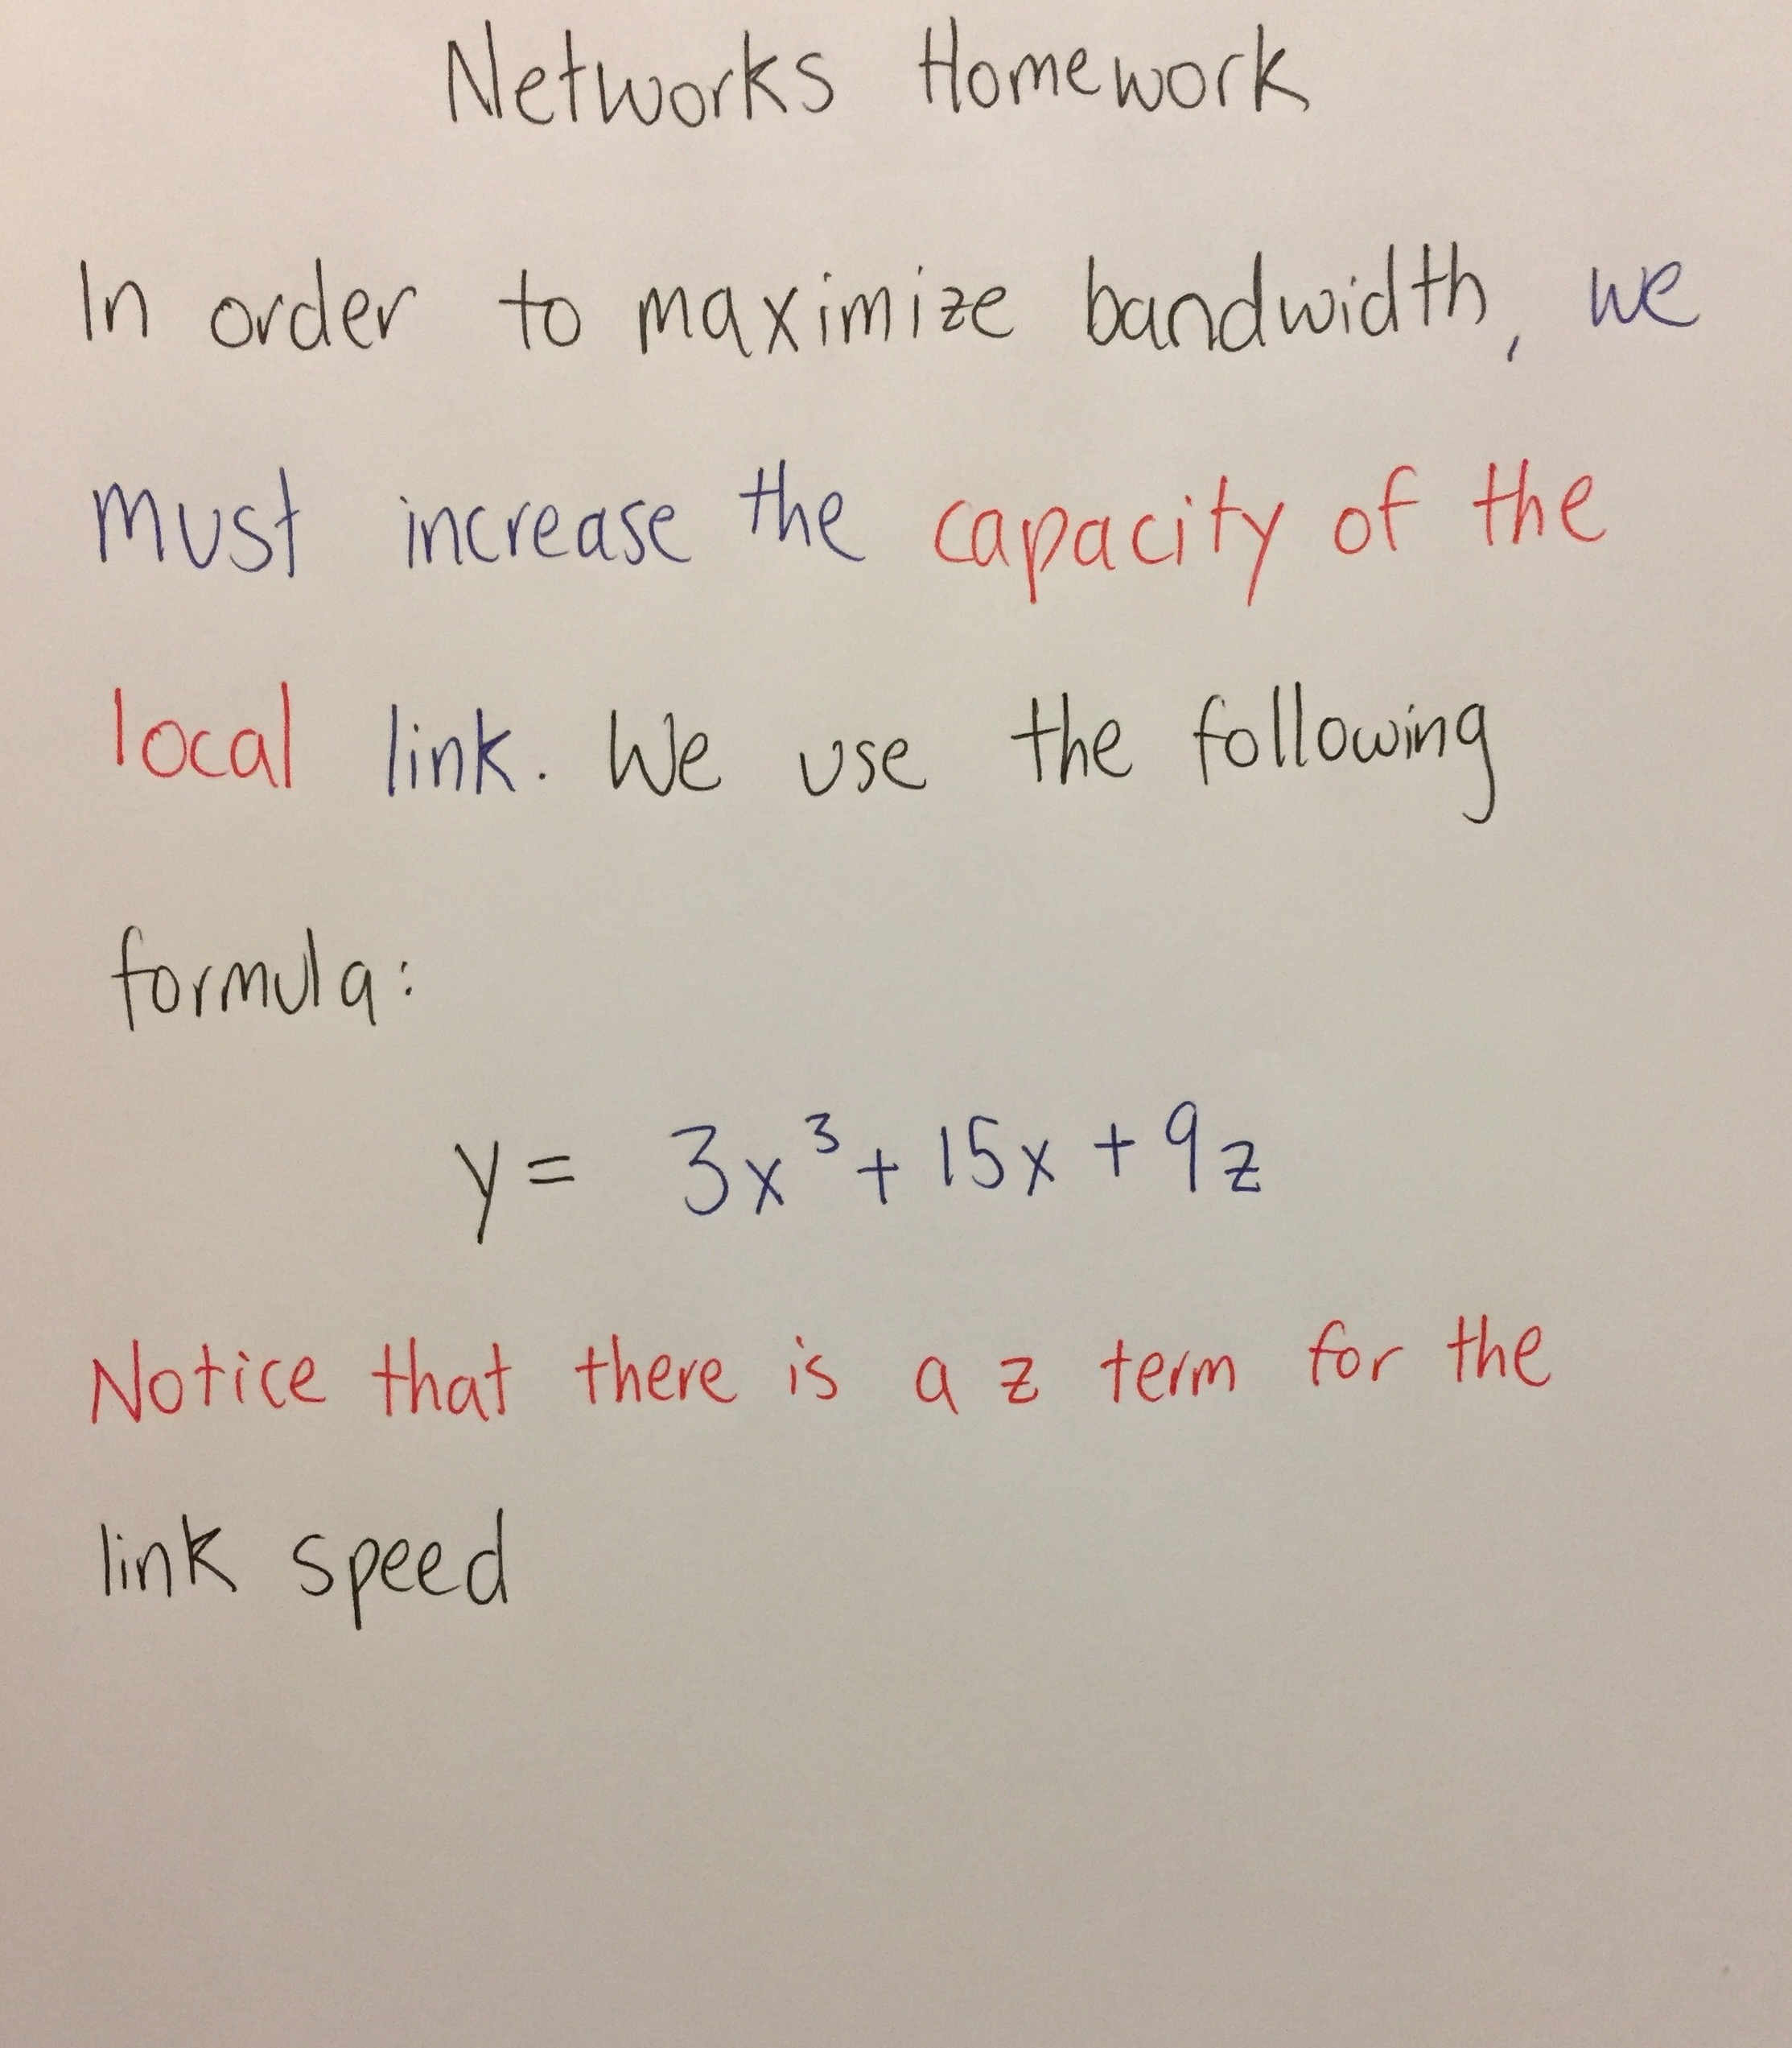 Networks Homework
In order to maximize bandwidth, we
must increase the capacity of the
local link. We use the following
formula:
y = 3x³ + 15x + 9z
Notice that there is a z term for the
link speed